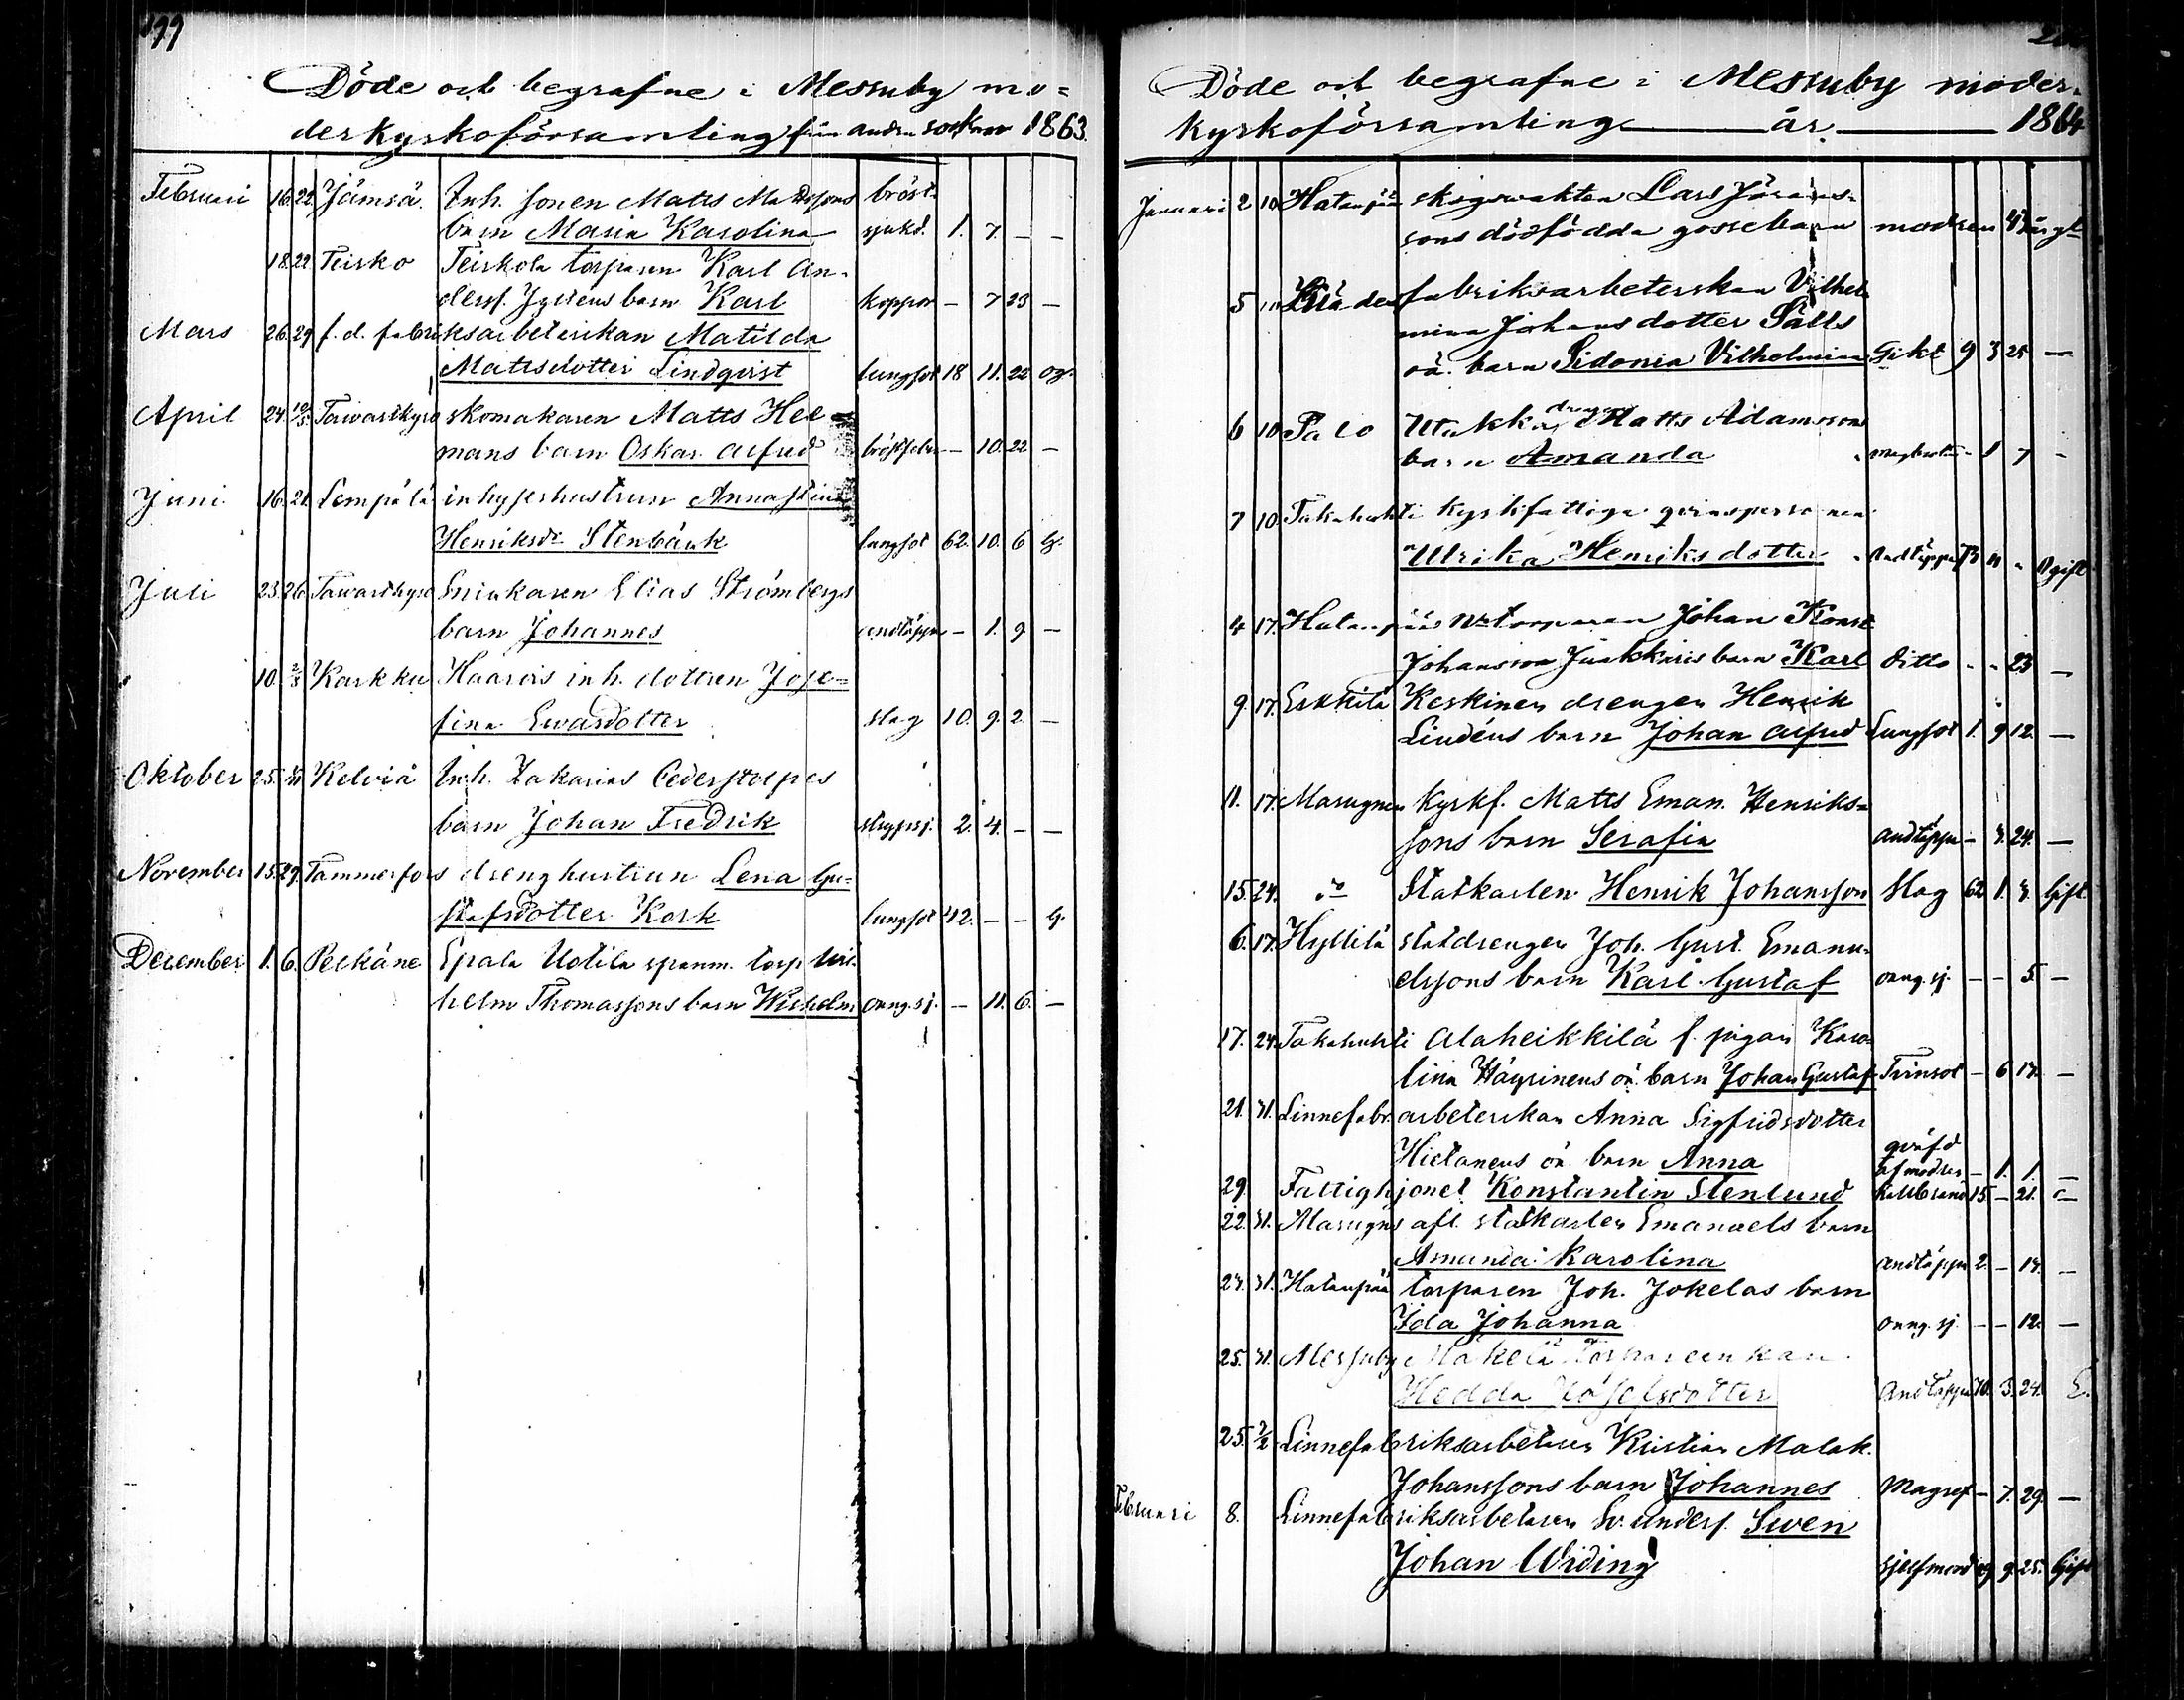 199
Döde och begrafne i Messuby mo=
derkyrkoförsamling från andra socknar 1863.
Februari 16. 22. Jämsä. Inh. sonen Matts Mattssons bröst-
barn Maria Karolina sjukd. 1. 7. — —
18. 22. Teisko Teiskola torparen Karl An-
derss. Jyrens barn Karl koppor — 7 23 —
Mars 26. 29 f. d. fabriksarbeterskan Matilda
Mattsdotter Lindqvist lungsot 18 11. 22 og.
April 24. 10/5. Tavastkyro skomakaren Matts Hel
mans barn Oskar Alfred bröstfeber — 10. 22 —
Juni 16. 21. Lempälä inhyseshustrun Anna Stina
Henriksdr Stenbäck lungsot 62. 10. 6 G.
Juli 23. 26. Tavastkyro Snickaren Elias Strömbergs
barn Johannes andtäppa — 1. 9 —
10. 2/8 Karkku Haarois inh. dottren Jose=
fina Ewasdotter slag 10. 9. 2. —
Oktober 25. Kelviå Inh. Zakarias Cederstorpes
barn Johan Fredrik strypsj. 2. 4. — —
November 15. 29. Tammerfors drenghustrun Lena Gu-
stafsdotter Kork lungsot 42. — — G.
December 1. 6. Pelkäne Epala Uotila spanm. torp. Wil-
helm Thomassons barn Wilhelm oang. sj. — 11. 6. —
Döde och begrafne i Messuby moder-
kyrkoförsamling år 1864
Januari 2 10 Hatanpää skogswakten Lars Jörans-
sons dödfödda gossebarn modren
5 10 fabriksarbeterskan Vilhel
mina Johansdotter Sälls
oä. barn Sidonia Vilhelmina Gikt 9 3 25 —
6 10 Palo Utukka drengen Matts Adamssons
barn Amanda 1 7 -
7 10. Takahuhti kyrkfattiga qvinspersonen
Ulrika Henriksdotter Andtäppa 73 11 - Ogift
4 17. Hatanpää torparen Johan Konst.
Johansson Juakkaris barn Karl ditto - - 23 —
9 17. Erkkilä Keskinen drengen Henrik
Lindéns barn Johan Alfred Lungsot 1. 9 12. —
11. 17. Masugnen Kyrkf. Matts Eman. Henriks=
sons barn Serafia andtäppa — 3. 24. —
15. 24. do Statkarlen Henrik Johansson Slag 62 1. 3. Gift
6. 17. Hyllilä statdrengen Joh. Gust. Emanu-
elssons barn Karl Gustaf oang. sj. — — 5. —
17. 24. Takahuhti Alaheikkilä f. pigan Karo-
lina Häyrinens oä. barn Johan Gustaf Tvinsot — 6 13. —
21. 31. Linnefabr. arbeterskan Anna Sigfridsdotter
Hietanens oä. barn Anna qväfd af modren — 1. 1. —
29. Fattighjonet Konstantin Stenlund Kallbrand 15 — 21. o—
22. 31. Masugns afl. statkarlen Emanuels barn
Amanda Karolina andtäppa 2. — 13. —
23. 31. Hatanpää torparen Joh. Jokelas barn
Ida Johanna oang. sj. — — 12. —
25. 31. Messuby Mäkelä torpareenkan
Hedda Josefsdotter Andtäppa 70. 3. 24. E.
25. 7/2 Linnefabriksarbetaren Kristian Malak.
Johanssons barn Johannes Magref — 7. 29. —
Februari 8. Linnefabriksarbetaren Sv. unders. Swen
Johan Widing sjelfmord 29 9. 25. Gift